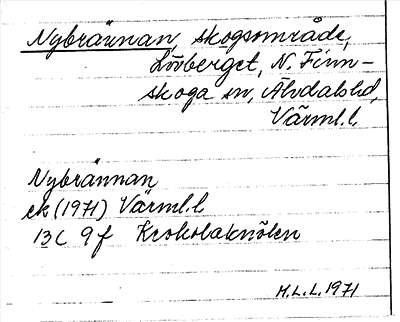 Nybrännan, skogsområde,
Lövberget, N. Finn-
skoga sn, Älvdals hd,
Värml. l.
Nybrännan
ek (1971) Värml. l
13C 9f Krokolaknölen
H.L.L. 1971